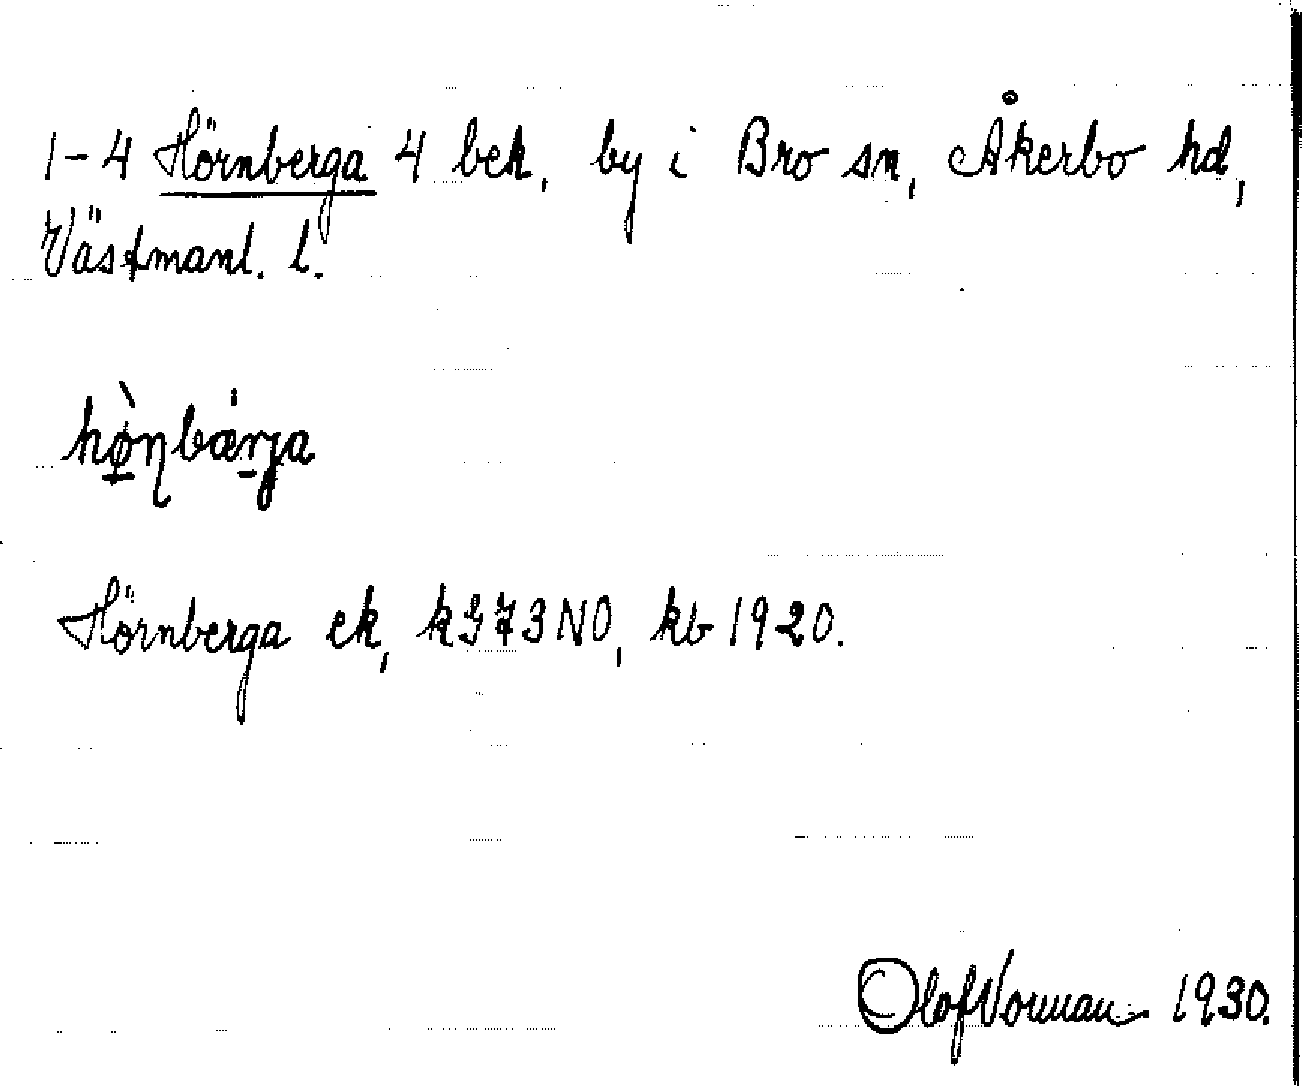 1-4 Hörnberga 4 bek, by i Bro sn, Åkerbo hd,
Västmanl. l.
hø̀ɳbærja
Hörnberga ek, kG73NO, kb 1920.
Olof Norman 1930.